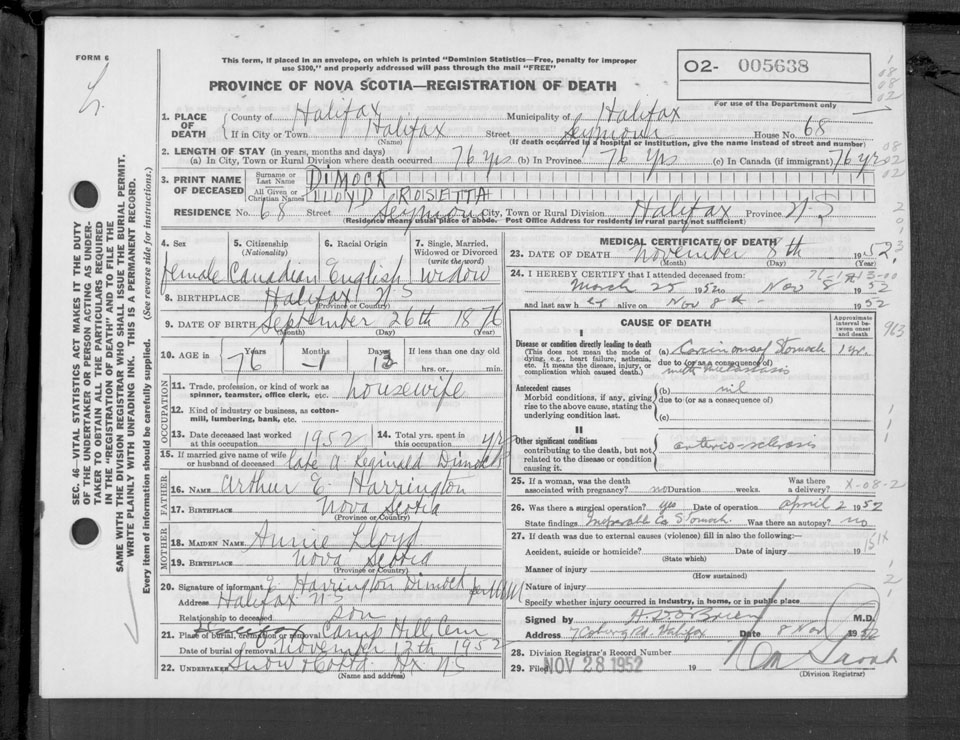 FORM 6
This form, if placed in an envelope, on which is printed "Dominion Statistics—Free, penalty for improper
use $300," and properly addressed will pass through the mail "FREE"
PROVINCE OF NOVA SCOTIA—REGISTRATION OF DEATH
O2- 005638
For use of the Department only
1. PLACE OF DEATH County of Halifax Municipality of Halifax
If in City or Town Halifax Street Seymour House No. 68
(Name) (If death occurred in a hospital or institution, give its name instead of street and number)
2. LENGTH OF STAY (in years, months and days)
(a) In City, Town or Rural Division where death occurred 76 yrs (b) In Province 76 yrs (c) In Canada (if immigrant) 76 yrs
3. PRINT NAME OF DECEASED Surname or Last Name DIMOCK
All Given or Christian Names LLOYD ROSETTA
RESIDENCE No. 68 Street Seymour City, Town or Rural Division Halifax Province N S
(Residence means usual place of abode. Post Office Address for residents in rural parts not sufficient)
4. Sex 5. Citizenship (Nationality) 6. Racial Origin 7. Single, Married, Widowed or Divorced (write the word)
female Canadian English widow
8. BIRTHPLACE Halifax N S
(Province or Country)
9. DATE OF BIRTH September 26th 1876
(Month) (Day) (Year)
10. AGE in Years Months Days If less than one day old
76 1 13 hrs. or min.
OCCUPATION
11. Trade, profession, or kind of work as spinner, teamster, office clerk, etc. housewife
12. Kind of industry or business, as cotton-mill, lumbering, bank, etc.
13. Date deceased last worked at this occupation 1952 14. Total yrs. spent in this occupation yrs
15. If married give name of wife or husband of deceased late A Reginald Dimock
FATHER
16. NAME Arthur E Harrington
17. BIRTHPLACE Nova Scotia
(Province or Country)
MOTHER
18. MAIDEN NAME Annie Lloyd
19. BIRTHPLACE Nova Scotia
(Province or Country)
20. Signature of informant Harrington Dimock per
Address Halifax N S
Relationship to deceased son
21. Place of burial, cremation or removal Halifax Camp Hill Cem
Date of burial or removal November 12th 1952
22. UNDERTAKER Snow & Co Ltd Hx N S
(Name and address)
MEDICAL CERTIFICATE OF DEATH
23. DATE OF DEATH November 8th 1952
(Month) (Day)
24. I HEREBY CERTIFY that I attended deceased from:
March 25 1952 to Nov 8th 1952
and last saw her alive on Nov 8th 1952
CAUSE OF DEATH
Approximate interval between onset and death
I
Disease or condition directly leading to death
(This does not mean the mode of dying, e.g., heart failure, asthenia, etc. It means the disease, injury, or complication which caused death.)
(a) Carcinoma of Stomach 1 yr.
due to (or as a consequence of)
with metastasis
Antecedent causes
Morbid conditions, if any, giving rise to the above cause, stating the underlying condition last.
(b) nil
due to (or as a consequence of)
(c)
II
Other significant conditions
contributing to the death, but not related to the disease or condition causing it.
arterio-sclerosis
25. If a woman, was the death associated with pregnancy? no Duration weeks. Was there a delivery?
X-08-2
26. Was there surgical operation? yes Date of operation April 2 1952
State findings Inoperable Ca Stomach. Was there an autopsy? no
27. If death was due to external causes (violence) fill in also the following:—
Accident, suicide or homicide? Date of injury 19
(State which)
151X
Manner of injury
(How sustained)
Nature of injury
Specify whether injury occurred in industry, in home, or in public place
Signed by H D O'Brien M.D.
Address 7 Coburg Rd. Halifax Date 8 Nov 1952
28. Division Registrar's Record Number
29. Filed NOV 28 1952 19
(Division Registrar)
SEC. 46—VITAL STATISTICS ACT MAKES IT THE DUTY
OF THE UNDERTAKER OR PERSON ACTING AS UNDER-
TAKER TO OBTAIN ALL THE PARTICULARS REQUIRED
IN THE "REGISTRATION OF DEATH" AND TO FILE THE
SAME WITH THE DIVISION REGISTRAR WHO SHALL ISSUE THE BURIAL PERMIT.
WRITE PLAINLY WITH UNFADING INK. THIS IS A PERMANENT RECORD.
Every item of information should be carefully supplied. (See reverse side for instructions.)